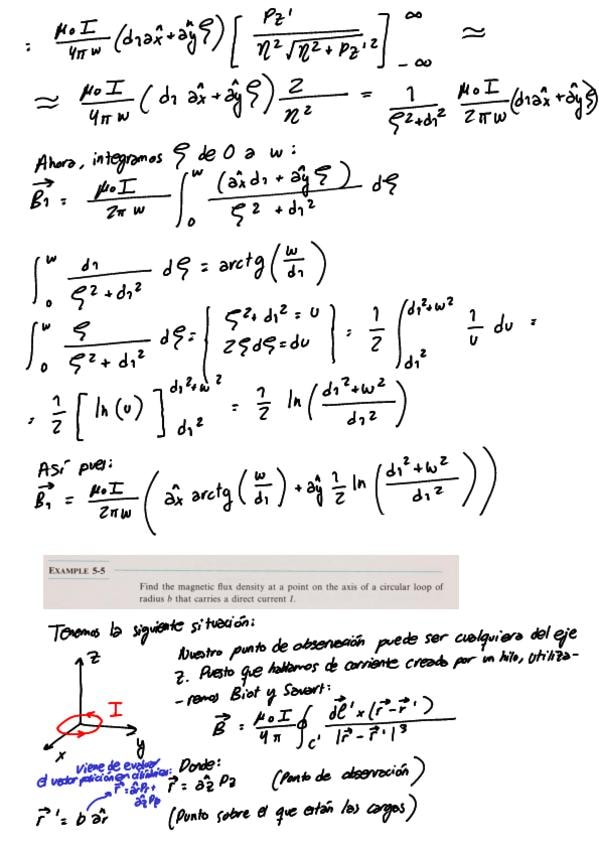 : μ₀I/4πw (d₁âx+ây ζ) [ Pz' / η²√(η²+Pz'²) ]_{-∞}^{∞} ≈
≈ μ₀I/4πw (d₁ âx+ây ζ) 2/η² = 1/(ζ²+d₁²) μ₀I/2πw (d₁âx+ây ζ)
Ahora, integramos ζ de 0 a w:
B⃗₁ = μ₀I/2πw ∫₀^w (âx d₁ + ây ζ)/(ζ² + d₁²) dζ
∫₀^w d₁/(ζ²+d₁²) dζ = arctg(w/d₁)
∫₀^w ζ/(ζ²+d₁²) dζ = | ζ²+d₁² = u 2ζdζ=du | = 1/2 ∫_{d₁²}^{d₁²+w²} 1/u du =
= 1/2 [ln(u)]_{d₁²}^{d₁²+w²} = 1/2 ln((d₁²+w²)/d₁²)
Así pues:
B⃗₁ = μ₀I/2πw (âx arctg(w/d₁) + ây 1/2 ln((d₁²+w²)/d₁²))
EXAMPLE 5-5
Find the magnetic flux density at a point on the axis of a circular loop of
radius b that carries a direct current I.
Tenemos la siguiente situación:
Nuestro punto de observación puede ser cualquiera del eje
z. Puesto que hablamos de corriente creada por un hilo, utiliza-
-remos Biot y Savart:
B⃗ = μ₀I/4π ∮_{C'} dℓ⃗'×(r⃗-r⃗')/|r⃗-r⃗'|³
z
I
x
y
viene de evaluar
el vector posición en cilíndricas:
r⃗=âr Pr+
âz Pz
Donde:
r⃗ = âz Pz (Punto de observación)
r⃗' = b âr (Punto sobre el que están las cargas)